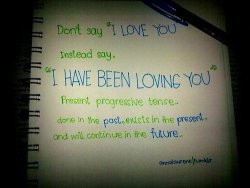 Don't say "I LOVE YOU
Instead say,
"I HAVE BEEN LOVING YOU"
Present progressive tense..
done in the past, exists in the present,
and will continue in the future..
/tumblr